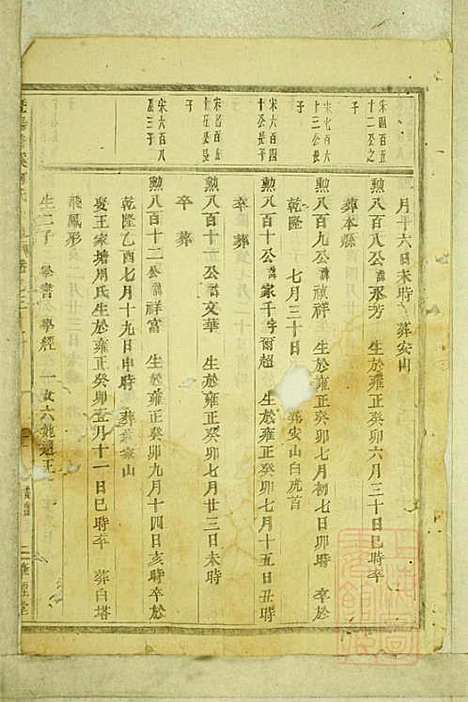 月十六日未時 葬安山
宋四百五十二公之子
勲八百八公諱永芳 生於雍正癸卯六月三十日巳時卒
葬本縣
宋七百六十三公長子
勲八百九公諱祥 生於雍正癸卯七月初七日卯時 卒於
乾隆 七月三十日 葬安山白虎首
宋六百四十公長子
勲八百十公諱家千字爾超 生於雍正癸卯七月十五日丑時
卒 葬
子
勲八百十一公諱文華 生於雍正癸卯七月廿三日未時
卒 葬
宋六百八 三子
勲八百十二公諱祥富 生於雍正癸卯九月十四日亥時卒於
乾隆乙酉七月十九日申時 葬 山
娶王家塘周氏生於雍正癸卯五月十一日巳時卒 葬白塔
飛鳳形
生二子 學書 學經 一女六龍適王